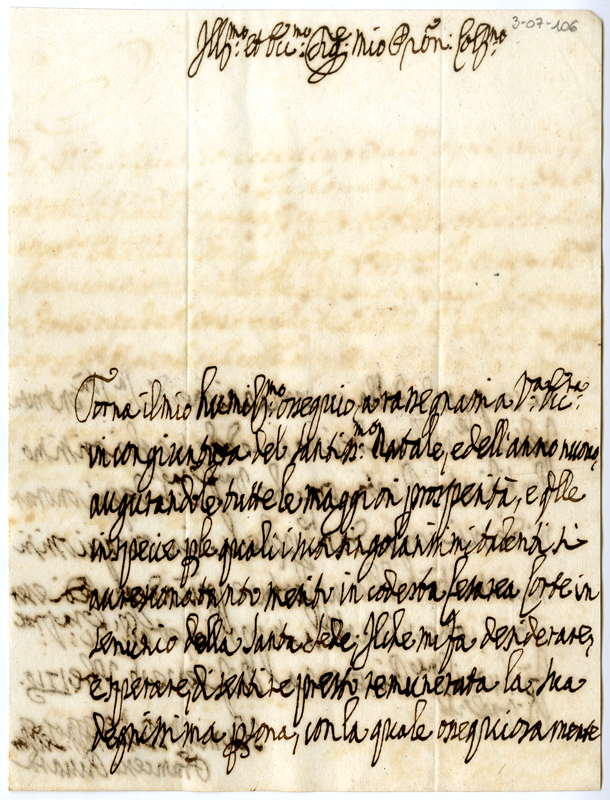 3-07-106
Ill.mo et Ecc.mo Sig.r mio Pron: Col.mo
Torna il mio humil.mo ossequio, a rassegnarsi a V.ra Ecc.za
in congiuntura del Santiss.mo Natale, e dell'anno nuovo,
augurandole tutte le maggiori prosperità, e qlle
in specie ple quali i suoi singolarissimi talenti si
tanto merito in codesta Cesarea Corte in
servitio della Santa Sede; Ilche mi fa desiderare,
e sperare, di sentire presto remunerata la sua
degnissima psona, con la quale ossequiosamente